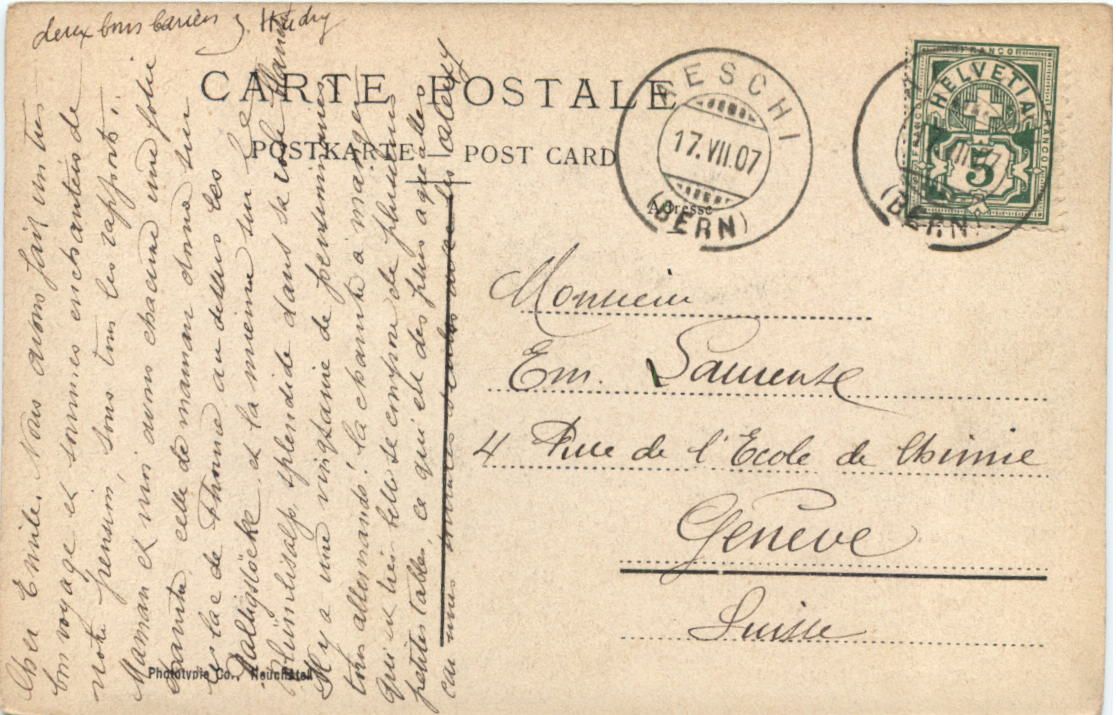 deux bons baisers
CARTE POSTALE
POSTKARTE — POST CARD
Adresse
AESCHI
17.VII.07
(BERN)
(BERN)
FRANCO
HELVETIA
5
Monsieur
Em. Laurent
4 Rue de l'Ecole de Chimie
Genève
Suisse
Cher Emile. Nous avons fait un très
bon voyage et sommes enchantés de
notre pension, sous tous les rapports.
Maman et moi avons chacune une jolie
chambre, celle de maman donne sur
le lac de Thoune au dessus les
Ralligstöcke et la mienne sur la
Blümlisalp, splendide dans sa robe blanche
Il y a une vingtaine de pensionnaires
tous allemands! la chambre à manger
qui est bien belle se compose de plusieurs
petites tables, ce qui est des plus agréables
car nous sommes seules avec les
Phototypie Co., Neuchâtel